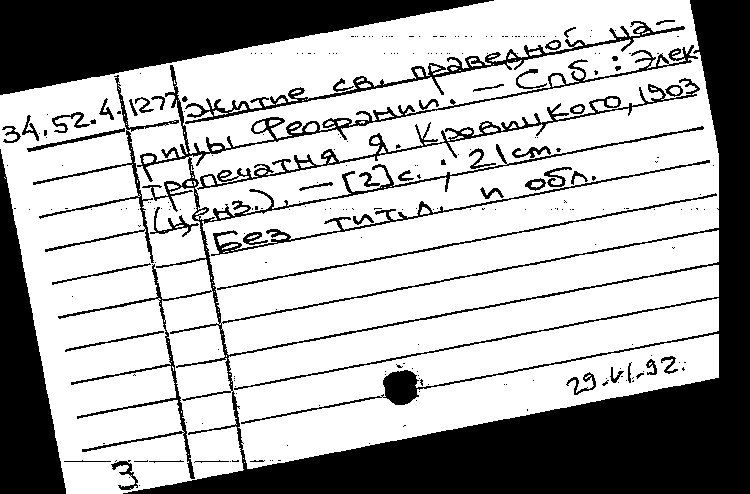 34.52.4.1277. Житие св. праведной ца-
рицы Феофании. — Спб. : Элек-
тропечатня Я. Кровицкого, 1903
(ценз.). — [2] с. ; 21 см.
Без тит. л. и обл.
29.VI.92.
3